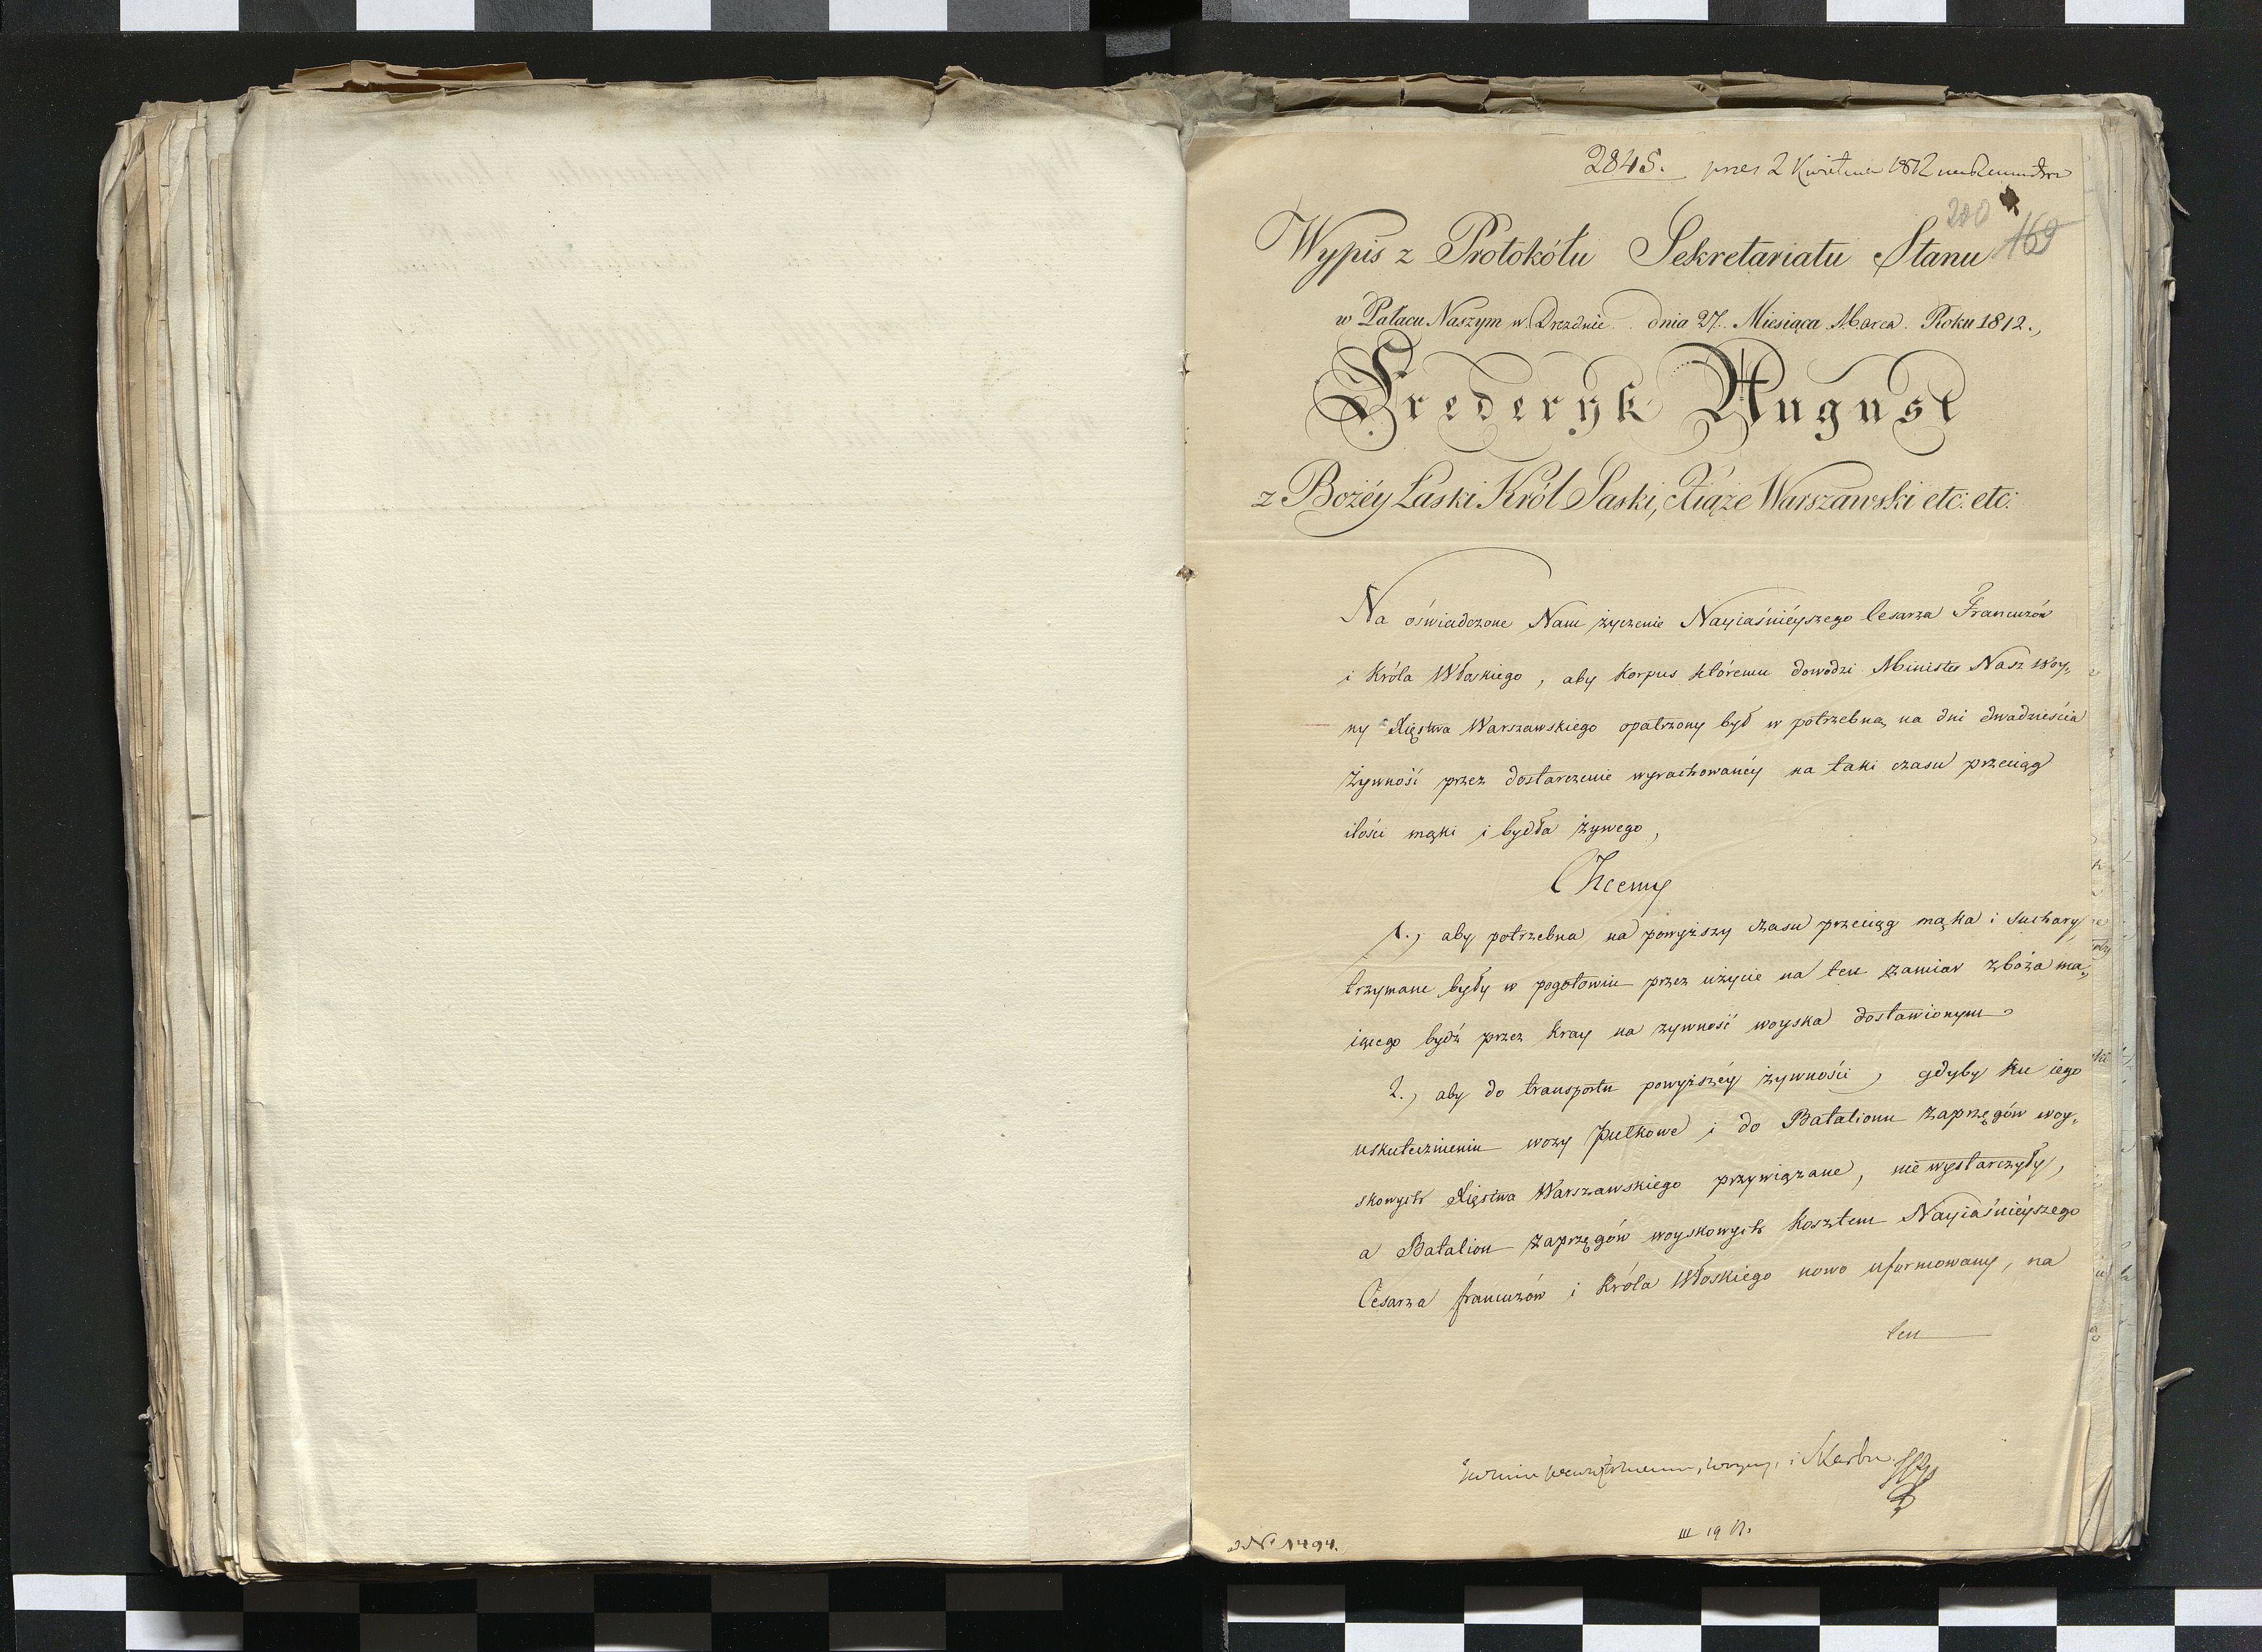 2845. pres 2 Kwietnia 1812
200
169
Wypis z Protokółu Sekretariatu Stanu
w Pałacu Naszym w Dreznie dnia 27. Miesiąca Marca. Roku 1812.,
Frederyk August
z Bożéy Łaski Król Saski, Xiąże Warszawski etc: etc:
Na oświadczone Nam życzenie Nayiaśniéyszego Cesarza Francuzów
i Króla Włoskiego, aby korpus któremu dowodzi Minister Nasz Woy„
ny Xięstwa Warszawskiego opatrzony był w potrzebną na dni dwadzieścia
żywność przez dostarczenie wyrachowanéy na taki czasu przeciąg
ilości mąki i bydła żywego,
Chcemy
1., aby potrzebna na powyższy czasu przeciąg mąka i suchary
trzymane były w pogotowiu przez użycie na ten zamiar zboża ma„
iącego bydź przez kray na żywność woyska dostawionym
2., aby do transportu powyższéy żywności, gdyby ku iego
uskutecznieniu wozy pułkowe i do Batalionu zaprzęgów woy„
skowych Xięstwa Warszawskiego przywiązane, nie wystarczyły,
a Batalion zaprzęgów woyskowych kosztem Nayiaśniéyszego
Cesarza francuzów i Króla Włoskiego nowo uformowany, na
ten
Woyny, i Skarbu
N° 1494.
III 19